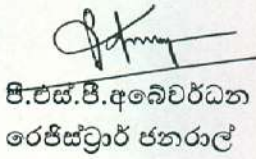 පී.එස්.පී.අබේවර්ධන
රෙජිස්ට්‍රාර් ජනරාල්